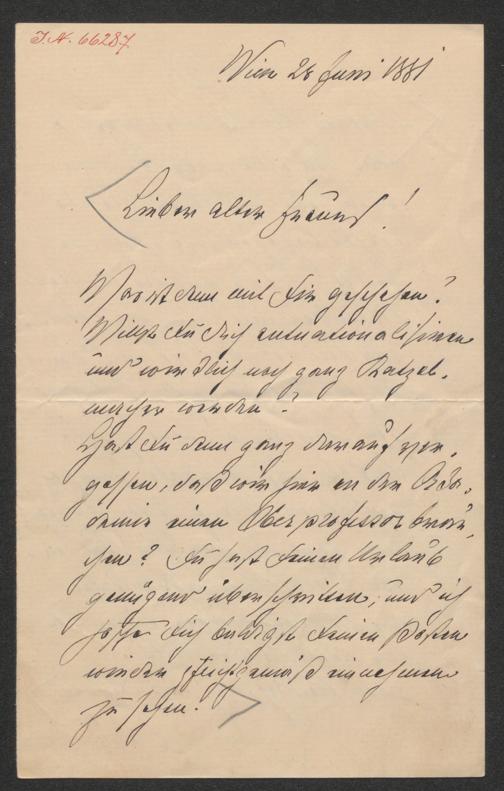 I.N. 66287
Wien 28 Juni 1881
Lieber alter Freund!
Was ist denn mit Dir geschehen?
Willst Du Dich entnationalisiren
und wirklich noch ganz Katzel-
macher werden?
Hast Du denn ganz darauf ver-
gessen, daß wir hier an der Aka-
demie einen Oberprofessor brau-
chen? Du hast Deinen Urlaub
genügend überschritten, und ich
hoffe Dich baldigst Deinen Posten
wieder pflichtgemäß einnehmen
zu sehen.